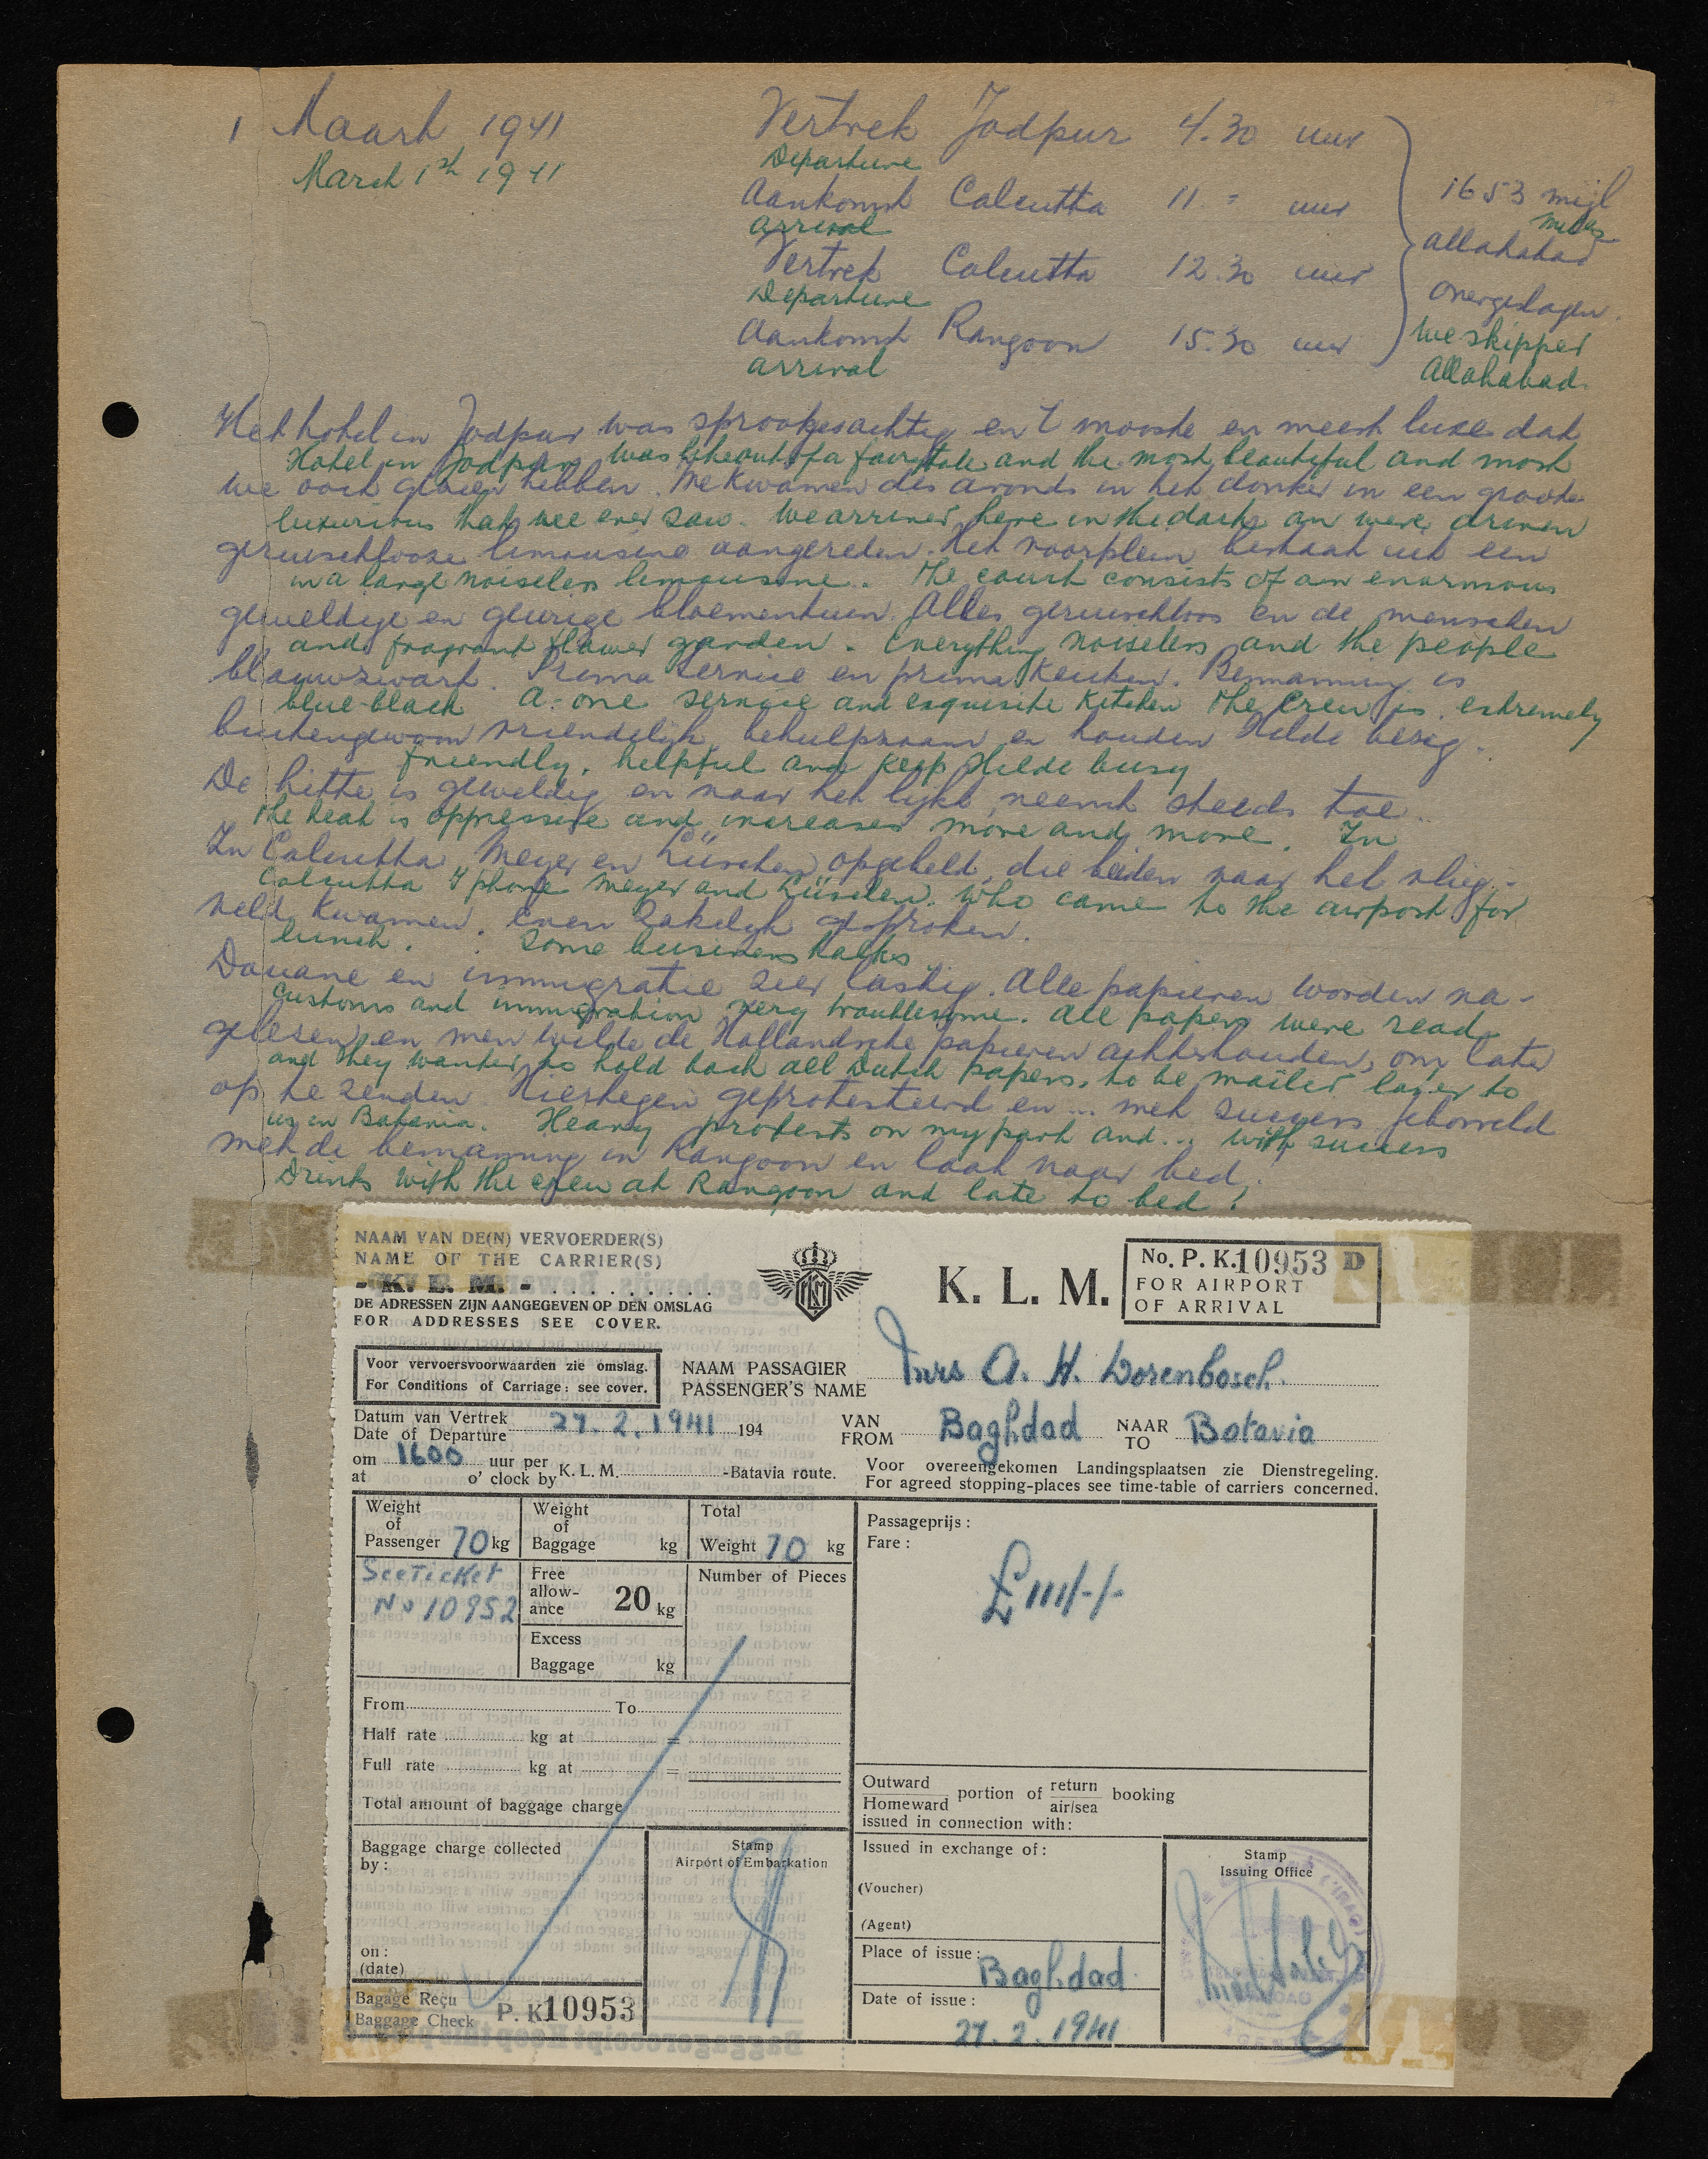 1 Maart 1941
March 1th 1941
Vertrek Jodpur 4.30 uur
Departure
Aankomst Calcutta 11.- uur
arrival
Vertrek Calcutta 12.30 uur
Departure
Aankomst Rangoon 15.30 uur
arrival
1653 mijl
miles
Allahabad
overgeslagen.
We skipped
Allahabad.
Het hotel in Jodpur was sprookjesachtig en 't mooiste en meest luxe dat
Hotel in Jodpur was like out of a fairytale and the most beautiful and most
we ooit gezien hebben. We kwamen des avonds in het donker in een groote
luxurious that wee ever saw. We arrived here in the dark an were driven
geruischlooze limousine aangereden. Het voorplein bestaat uit een
in a large noiseless limousine. The court consists of an enormous
geweldige en geurige bloementuin. Alles geruischloos en de menschen
and fragrant flower garden. Everything noiseless and the people
blauwzwart. Prima service en prima keuken. Bemanning is
blue-black A-one service and exquisite kitchen The Crew is extremely
buitengewoon vriendelijk, behulpzaam en houden Hilde bezig.
friendly, helpful and keep Hilde busy
De hitte is geweldig en naar het lijkt, neemt steeds toe.
The heat is oppressive and increases more and more. In
In Calcutta Meyer en Lüschen opgebeld, die beiden naar het vlieg-
Calcutta I phone Meyer and Lüschen. Who came to the airport for
veld kwamen. Even zakelijk gesproken.
lunch. Some business talks
Douane en immigratie zeer lastig. Alle papieren worden na-
Customs and immigration very troublesome. All papers were read
gelezen en men wilde de Hollandsche papieren achterhouden, om later
and they wanted to hold back all Dutch papers, to be mailed later to
op te zenden. Hiertegen geprotesteerd en... met succes. Geborreld
us in Batavia. Heavy protests on my part and... with success
met de bemanning in Rangoon en laat naar bed!
Drinks with the crew at Rangoon and late to bed!
NAAM VAN DE(N) VERVOERDER(S)
NAME OF THE CARRIER(S)
- K. L. M. -
DE ADRESSEN ZIJN AANGEGEVEN OP DEN OMSLAG
FOR ADDRESSES SEE COVER.
KLM
K. L. M.
No. P. K. 10953 D
FOR AIRPORT
OF ARRIVAL
Voor vervoersvoorwaarden zie omslag.
For Conditions of Carriage: see cover.
NAAM PASSAGIER
PASSENGER'S NAME
Mrs A. H. Dorenbosch.
Datum van Vertrek
Date of Departure
27.2.1941 194
VAN
FROM
Baghdad
NAAR
TO
Batavia
om
at
1600
uur per
o' clock by
K. L. M. -Batavia route.
Voor overeengekomen Landingsplaatsen zie Dienstregeling.
For agreed stopping-places see time-table of carriers concerned.
Weight
of
Passenger 70 kg
Weight
of
Baggage kg
Total
Weight 70 kg
Passageprijs:
Fare:
£111/-/-
See Ticket
No 10952
Free
allow-
ance 20 kg
Number of Pieces
Excess
Baggage kg
From To
Half rate kg at =
Full rate kg at =
Total amount of baggage charge
Outward
Homeward
portion of
return
air/sea
booking
issued in connection with:
Baggage charge collected
by:
Stamp
Airport of Embarkation
Issued in exchange of:
(Voucher)
(Agent)
Stamp
Issuing Office
on:
(date)
Place of issue: Baghdad
Bagage Reçu
Baggage Check
P. K. 10953
Date of issue:
27.2.1941